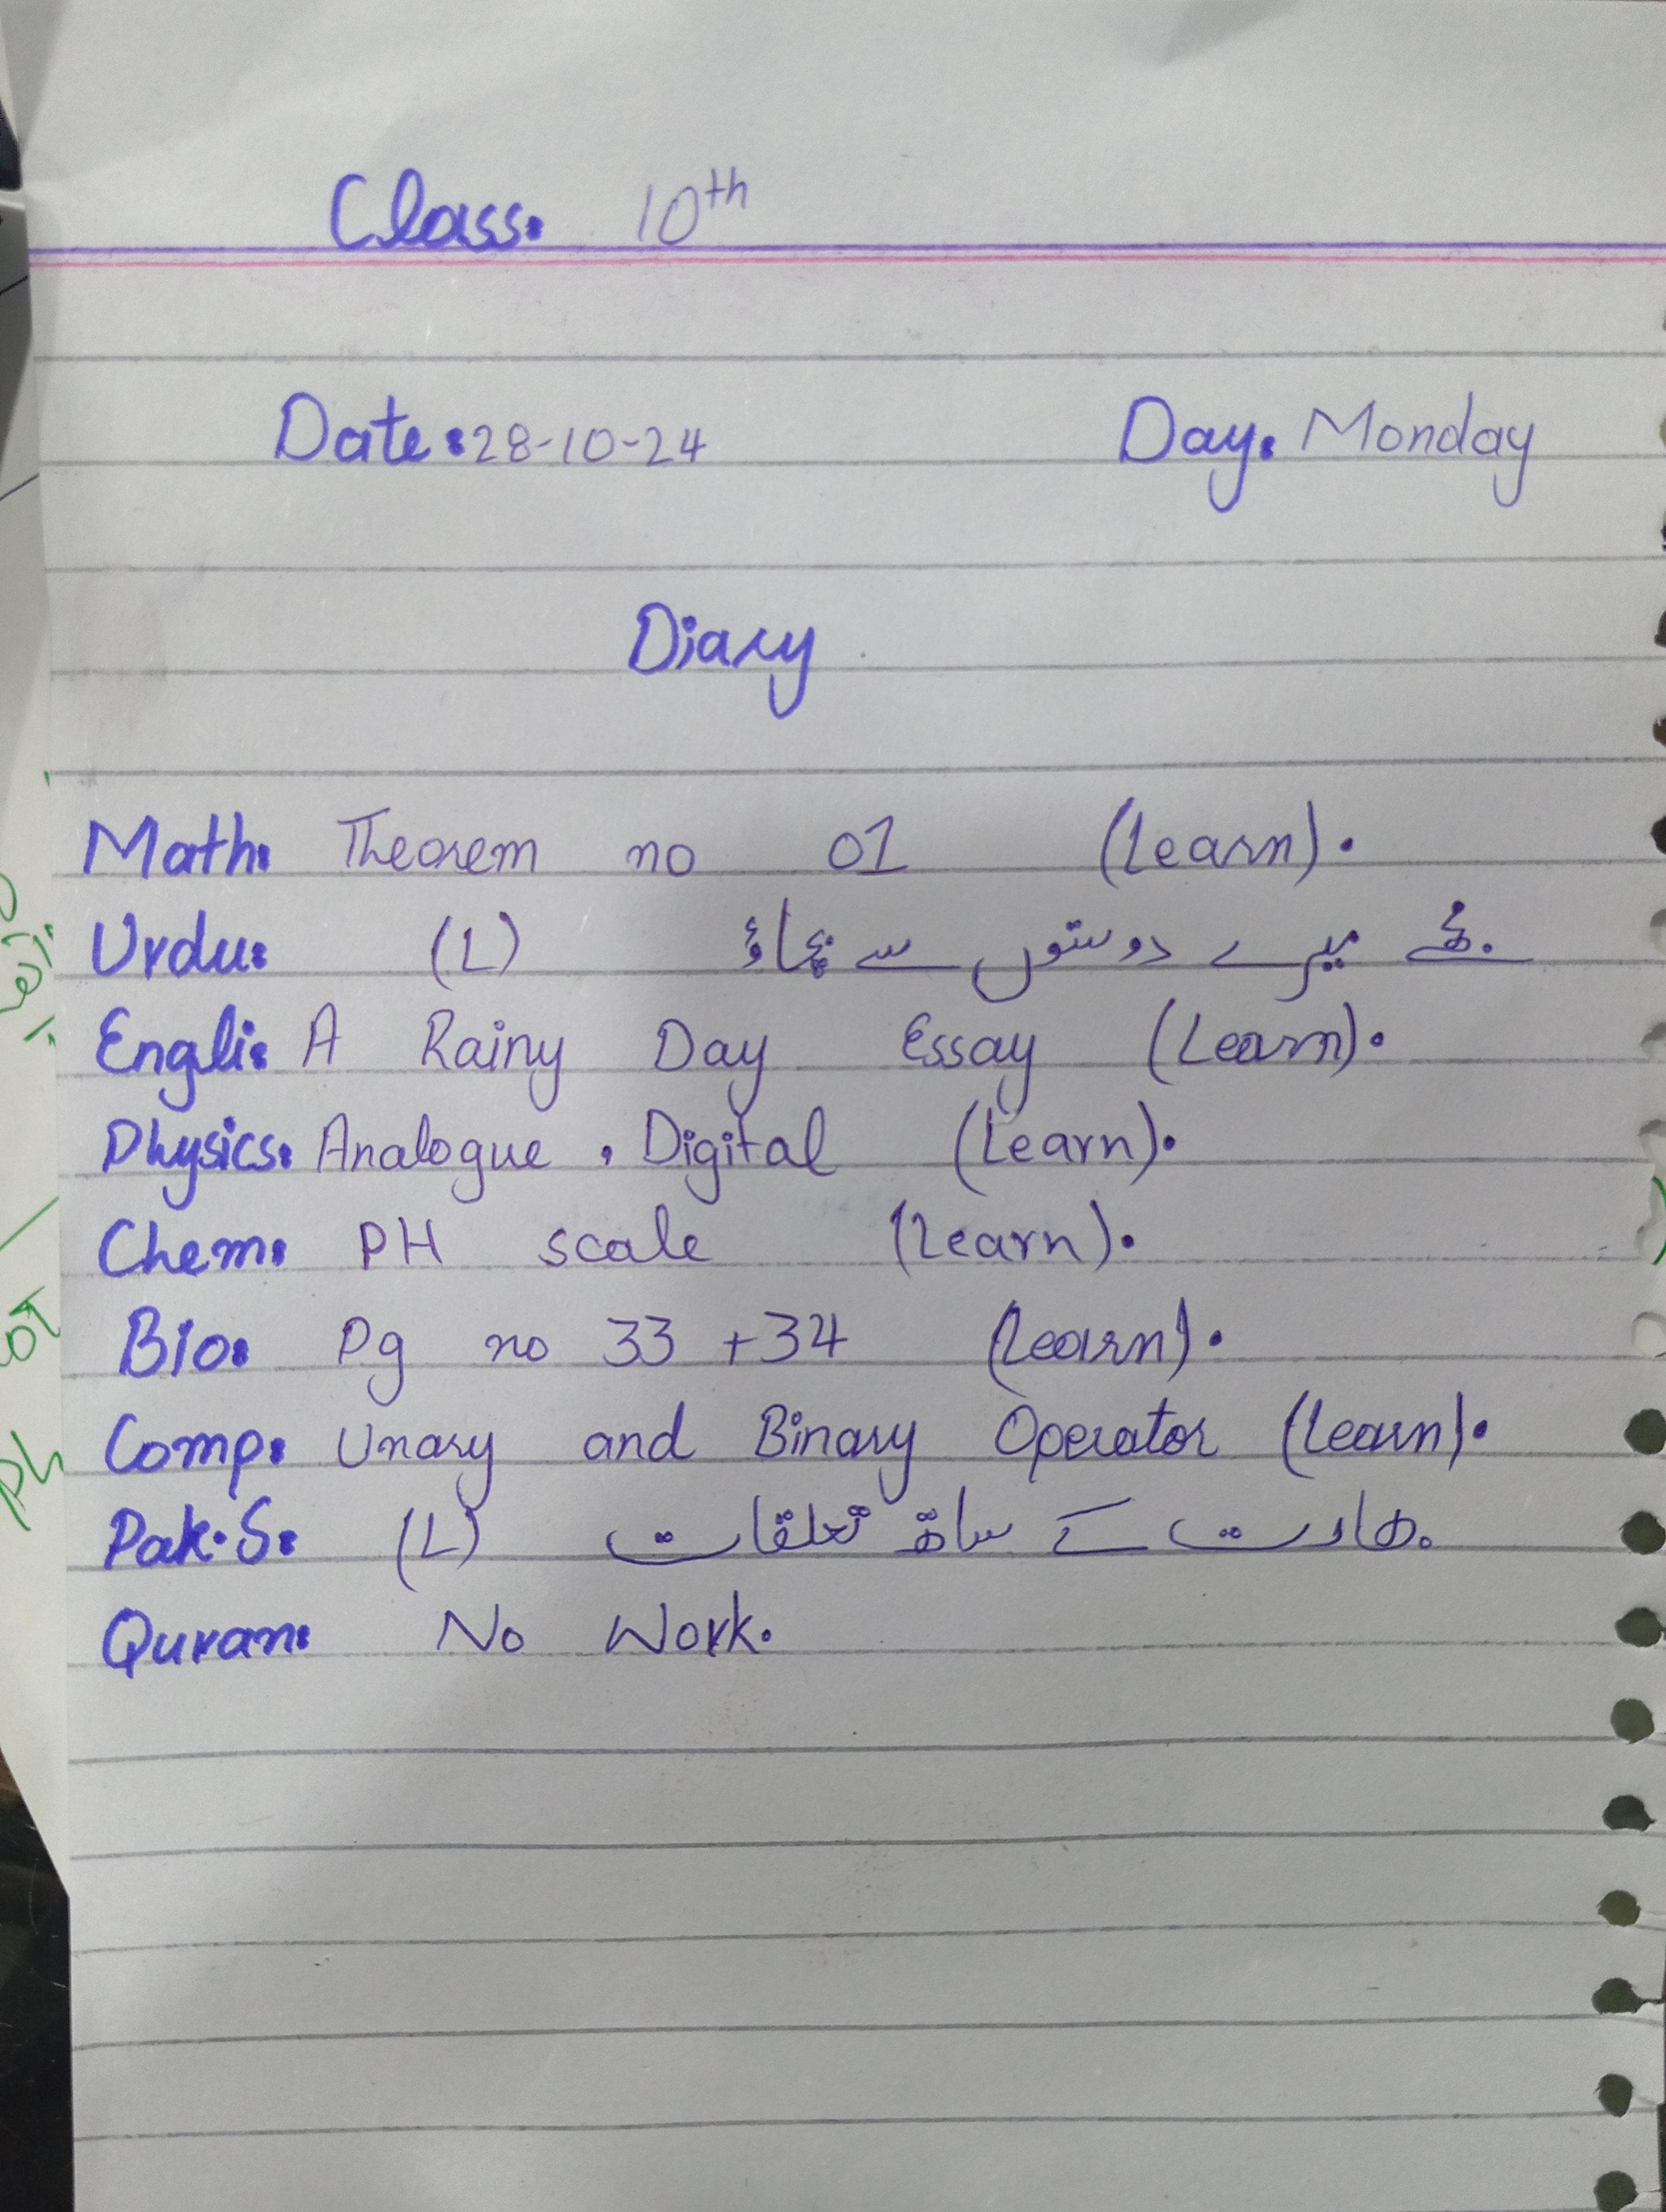 Class: 10th
Date: 28-10-24 Day: Monday
Diary
Math: Theorem no 01 (Learn).
Urdu: (L) مجھے میرے دوستوں سے بچاؤ
Engli: A Rainy Day Essay (Learn).
Physics: Analogue , Digital (Learn).
Chem: PH scale (Learn).
Bio: Pg no 33 +34 (Learn).
Comp: Unary and Binary Operator (Learn).
Pak.S: (L) بھارت کے ساتھ تعلقات
Quran: No Work.